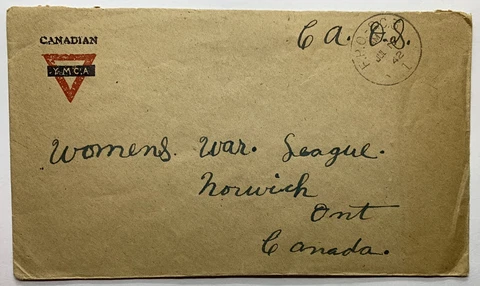 CANADIAN
Y.M.C.A
C A. O. S.
Womens. War. League.
Norwich
Ont
Canada.